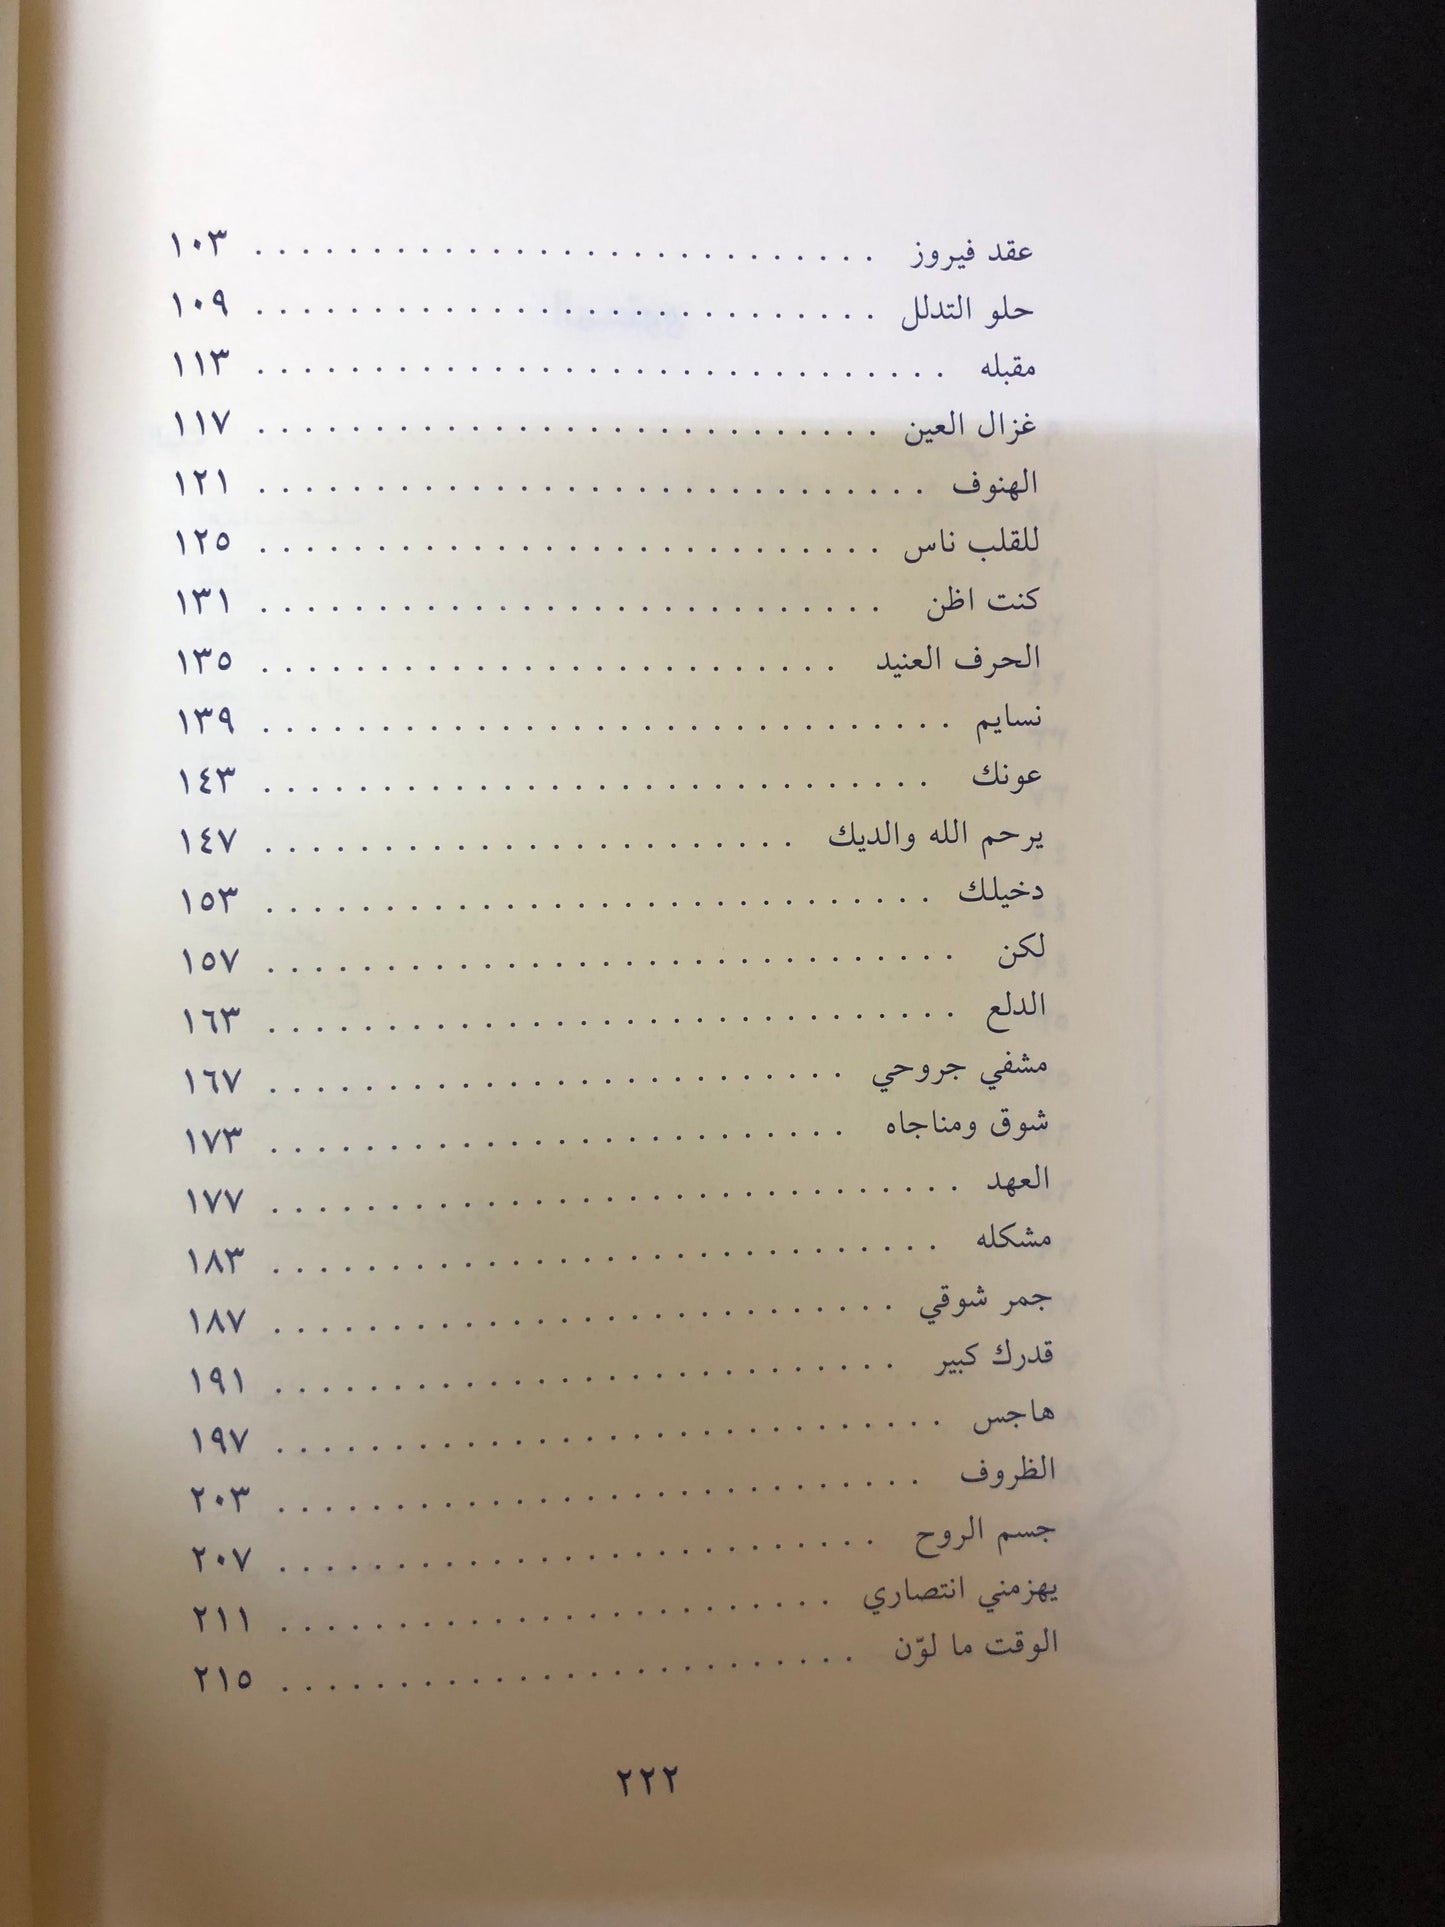 عقد فيروز . . . . . . . . . . . . . . . . . . . . . . . . . . . ١٠٣
حلو التدلل . . . . . . . . . . . . . . . . . . . . . . . . . . . ١٠٩
مقبله . . . . . . . . . . . . . . . . . . . . . . . . . . . . . . ١١٣
غزال العين . . . . . . . . . . . . . . . . . . . . . . . . . . . ١١٧
الهنوف . . . . . . . . . . . . . . . . . . . . . . . . . . . . . ١٢١
للقلب ناس . . . . . . . . . . . . . . . . . . . . . . . . . . . ١٢٥
كنت اظن . . . . . . . . . . . . . . . . . . . . . . . . . . . ١٣١
الحرف العنيد . . . . . . . . . . . . . . . . . . . . . . . . . ١٣٥
نسايم . . . . . . . . . . . . . . . . . . . . . . . . . . . . . . ١٣٩
عونك . . . . . . . . . . . . . . . . . . . . . . . . . . . . . ١٤٣
يرحم الله والديك . . . . . . . . . . . . . . . . . . . . . . . ١٤٧
دخيلك . . . . . . . . . . . . . . . . . . . . . . . . . . . . . ١٥٣
لكن . . . . . . . . . . . . . . . . . . . . . . . . . . . . . . ١٥٧
الدلع . . . . . . . . . . . . . . . . . . . . . . . . . . . . . . ١٦٣
مشفي جروحي . . . . . . . . . . . . . . . . . . . . . . . . . ١٦٧
شوق ومناجاه . . . . . . . . . . . . . . . . . . . . . . . . . ١٧٣
العهد . . . . . . . . . . . . . . . . . . . . . . . . . . . . . . ١٧٧
مشكله . . . . . . . . . . . . . . . . . . . . . . . . . . . . . ١٨٣
جمر شوقي . . . . . . . . . . . . . . . . . . . . . . . . . . . ١٨٧
قدرك كبير . . . . . . . . . . . . . . . . . . . . . . . . . . . ١٩١
هاجس . . . . . . . . . . . . . . . . . . . . . . . . . . . . . ١٩٧
الظروف . . . . . . . . . . . . . . . . . . . . . . . . . . . . ٢٠٣
جسم الروح . . . . . . . . . . . . . . . . . . . . . . . . . . ٢٠٧
يهزمني انتصاري . . . . . . . . . . . . . . . . . . . . . . . . ٢١١
الوقت ما لوّن . . . . . . . . . . . . . . . . . . . . . . . . . ٢١٥
٢٢٢